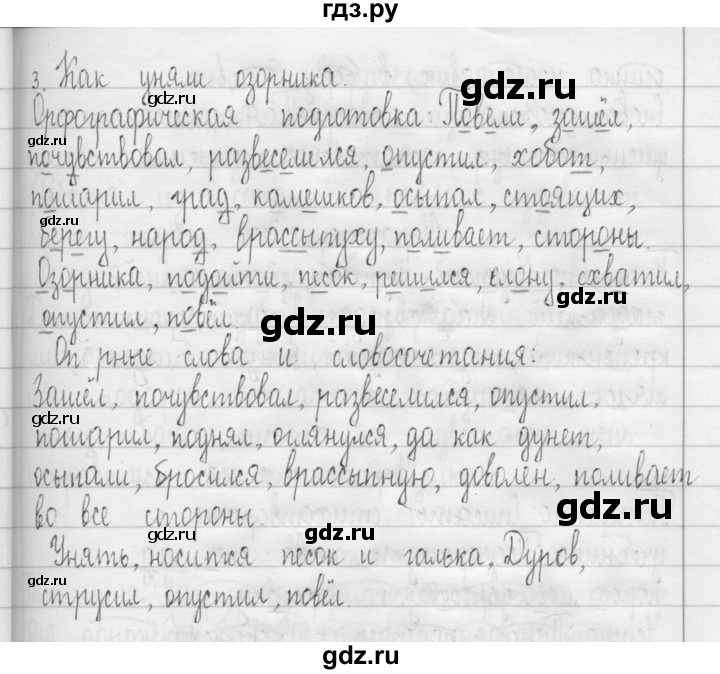 гдз.ру
3. Как уняли озорника.
Орфографическая подготовка: Повели, зашёл,
почувствовал, развеселился, опустил, хобот,
пошарил, град, камешков, осыпал, стоящих,
берегу, народ, врассыпуху, поливает, стороны.
Озорника, подойти, песок, решился, слону, схватил,
опустил, повёл.
Оп рные слова и словосочетания:
Зашёл, почувствовал, развеселился, опустил,
пошарил, поднял, оглянулся, да как дунет,
осыпали, бросился, врассыпную, доволен, поливает
во все стороны.
Унять, носится песок и галька, Дуров,
струсил, опустил, повёл.
gdz.ru
gdz.ru
gdz.ru
gdz.ru
gdz.ru
gdz.ru
gdz.ru
gdz.ru
gdz.ru
gdz.ru
gdz.ru
gdz.ru
gdz.ru
gdz.ru